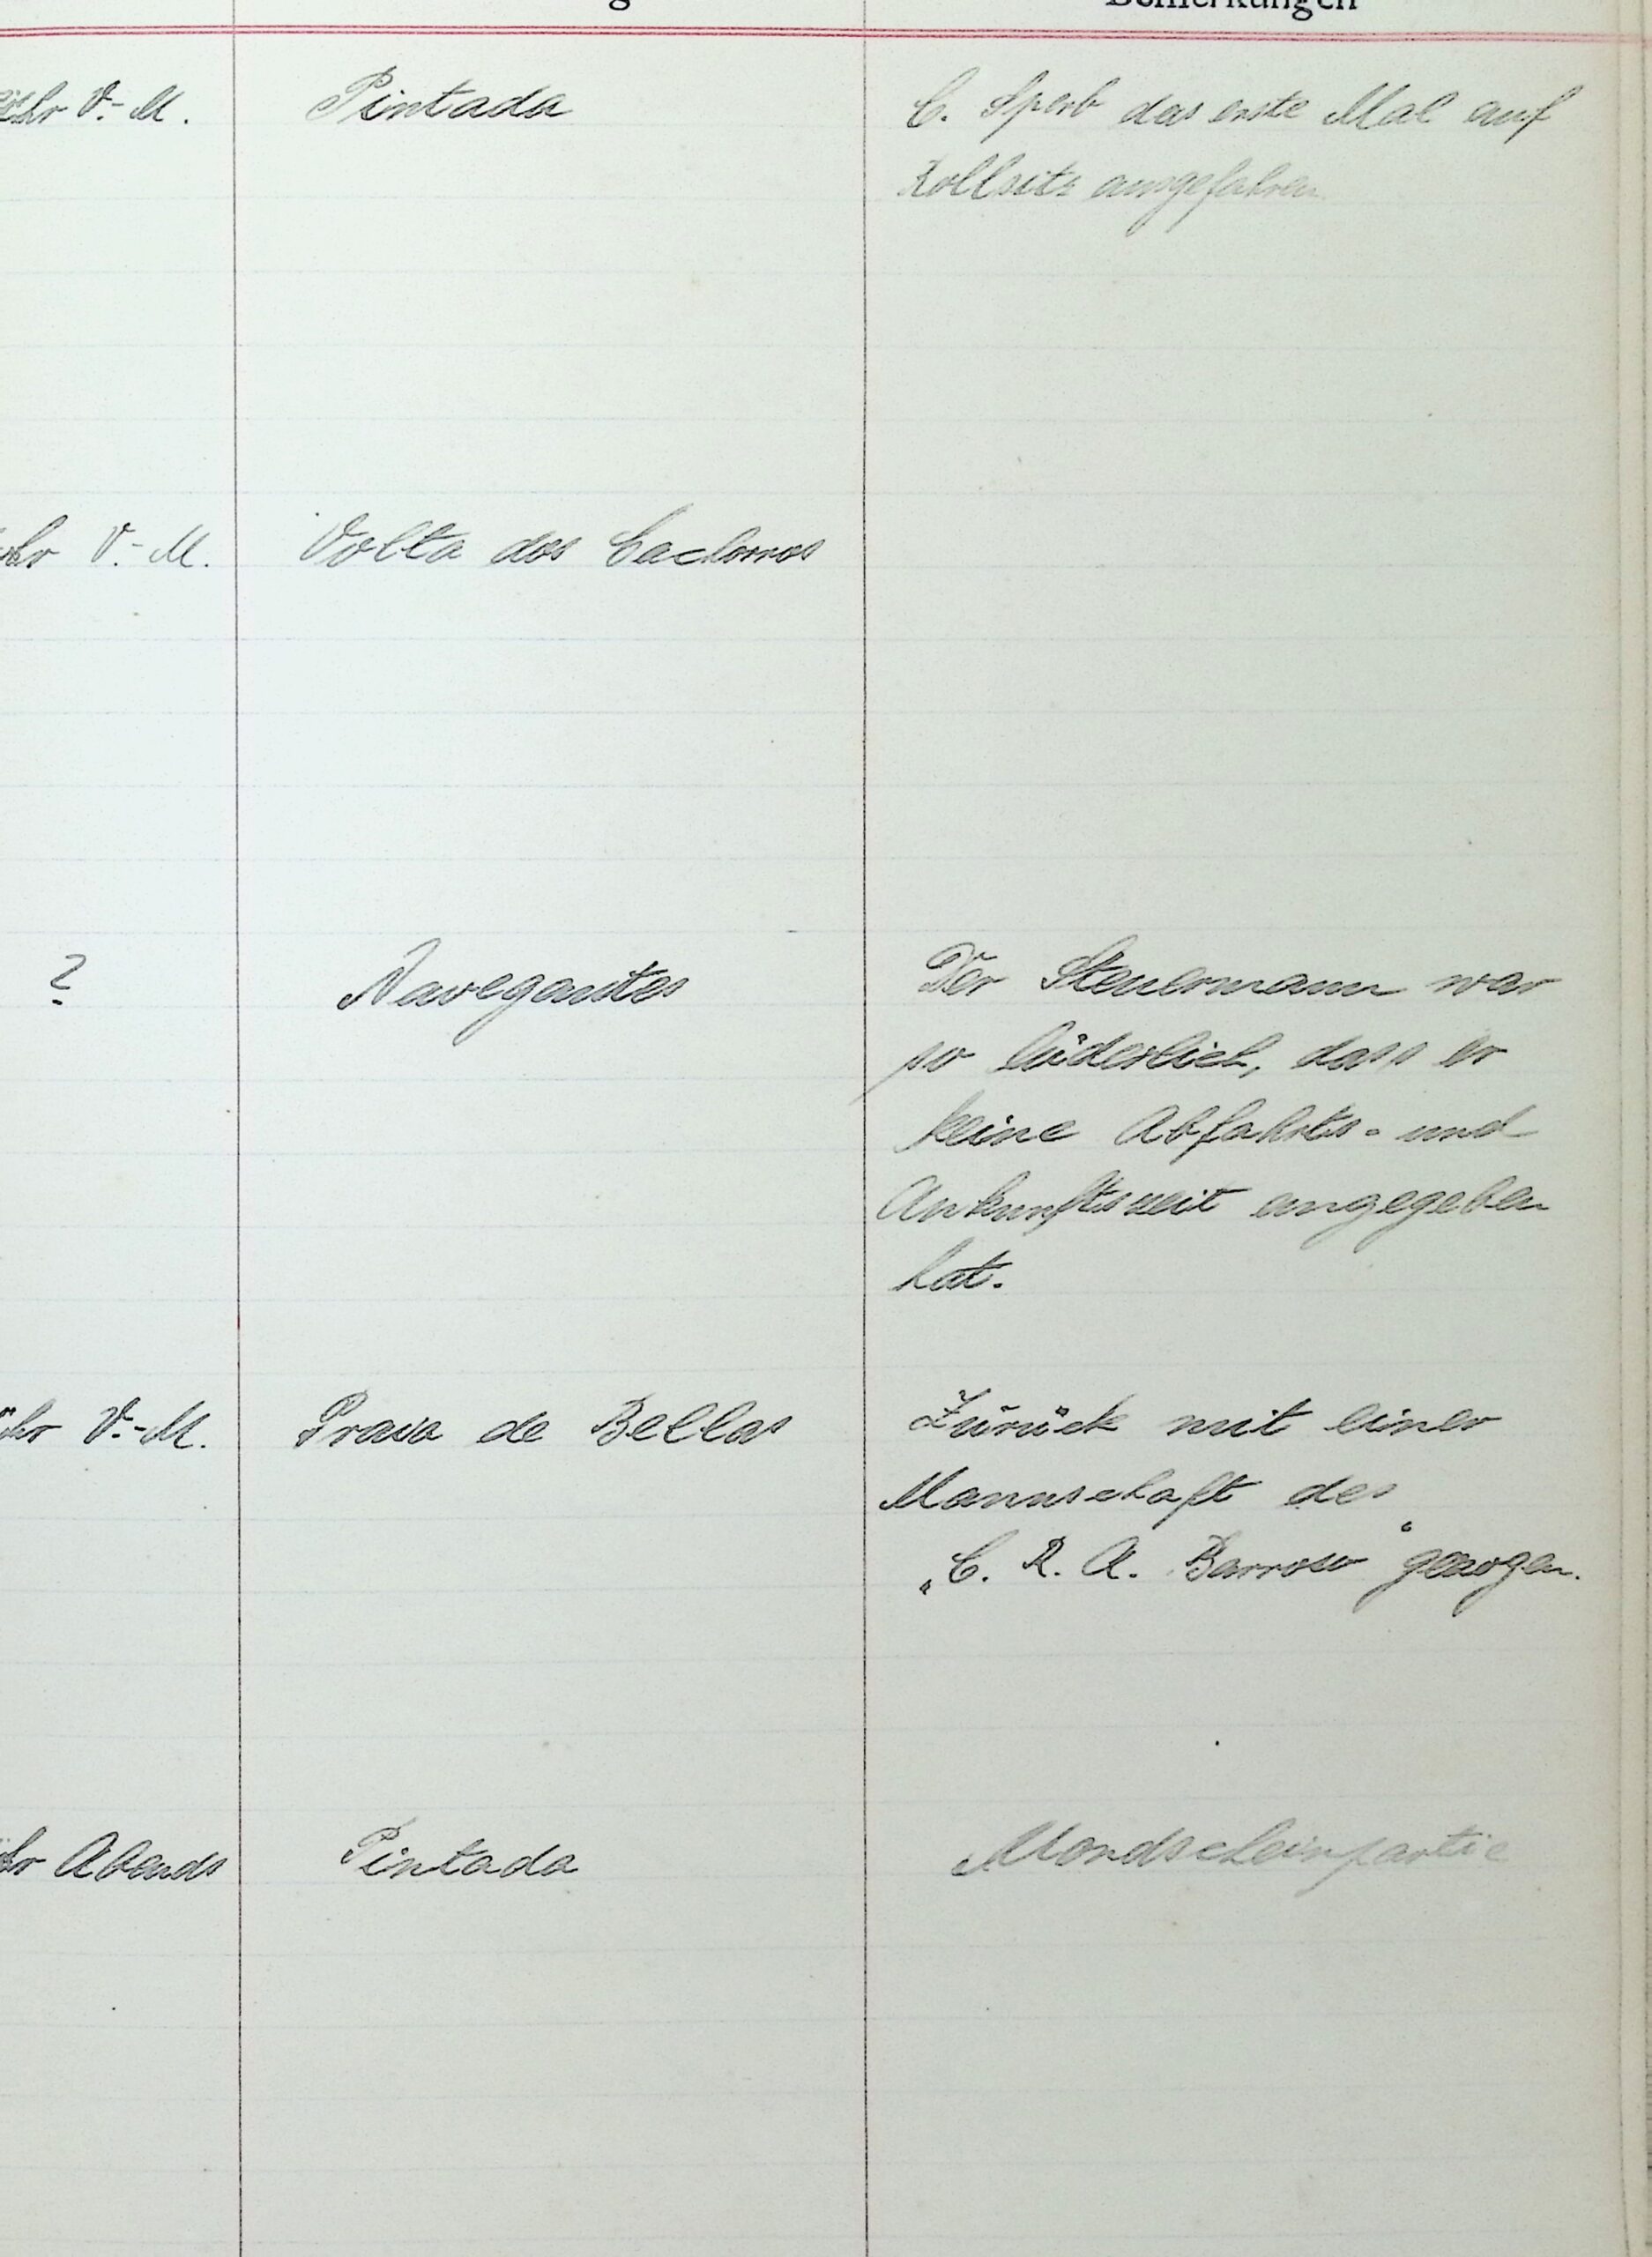 Bemerkungen
Uhr V.-M. Pintada C. Sperb das erste Mal auf
Rollsitz ausgefahren
Uhr V.-M. Volta dos Cachorros
? Navegantes Der Steuermann war
so lüderlich, dass er
keine Abfahrts- und
Ankunftszeit angegeben
hat.
Uhr V.-M. Praia de Bellas Zurück mit einer
Mannschaft des
„C. R. A. Barroso“ gezogen.
Uhr Abends Pintada Mondscheinpartie